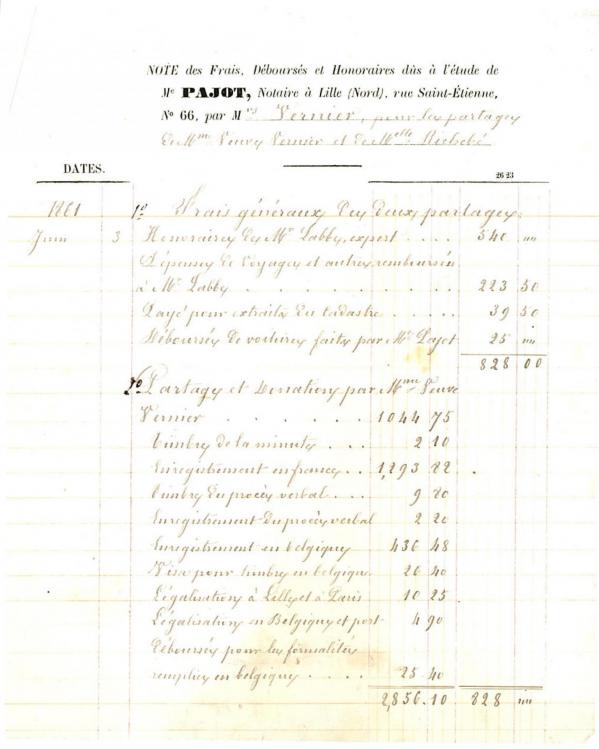 NOTE des Frais, Déboursés et Honoraires dûs à l'étude de
Me PAJOT, Notaire à Lille (Nord), rue Saint-Étienne,
No 66, par Mrs Vernier, pour les partages
de Mme Veuve Vernier et de Melle
DATES.
26 23
1861 1o Frais généraux des deux partages.
Juin 3 Honoraires de Mr Labbe, expert . . . . 540 "
Dépenses de voyages et autres, remboursés
à Mr Labbe . . . . . . . . 223 50
Payé pour extraits du Cadastre . . . . . 39 50
Déboursés de voitures faits par Me Pajot 25 "
828 00
2o Partage et Donation par Mme Veuve
Vernier . . . . . . 1044 75
Timbre de la minute . . . 2 10
Enregistrement en france . . 1,293 82
Timbre du procès verbal . . . 9 80
Enregistrement du procès verbal 2 20
Enregistrement en belgique 436 48
Visa pour timbre en belgique 26 40
Légalisations à Lille et à Paris 10 25
Légalisation en Belgique et port 4 90
Déboursés pour les formalités
remplies en belgique . . . . 25 40
2,856.10 828 "